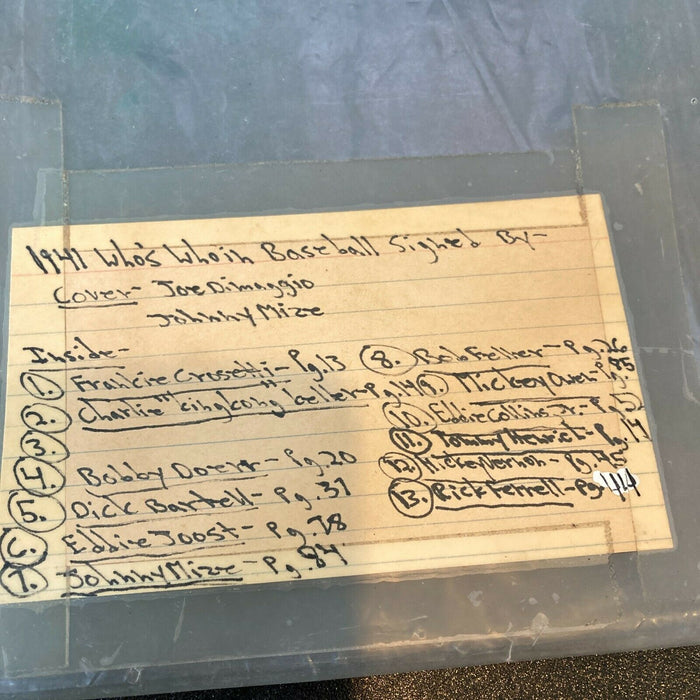 1941 Who's Who in Baseball Signed By-
Cover- Joe Dimaggio
Johnny Mize
Inside-
1. Francie Crosetti- Pg.13
2. Charlie "KingKong" Keller- Pg.14
3.
4. Bobby Doerr- Pg.20
5. Dick Bartell- Pg.37
6. Eddie Joost- Pg.78
7. Johnny Mize- Pg.84
8. Bob Feller- Pg.26
9. Mickey Owen- Pg.85
10. Eddie Collins Jr.- Pg.
11. Tommy Henrich- Pg.14
12. Mickey Vernon- Pg.45
13. Rick Ferrell- Pg. 44